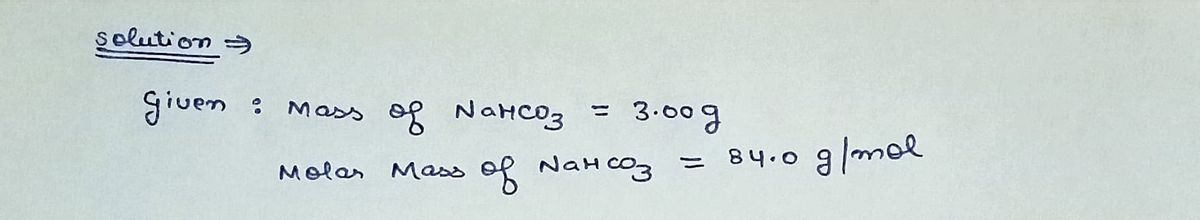 solution ⇒
Given : Mass of NaHCO₃ = 3.00g
Molar Mass of NaHCO₃ = 84.0 g/mol